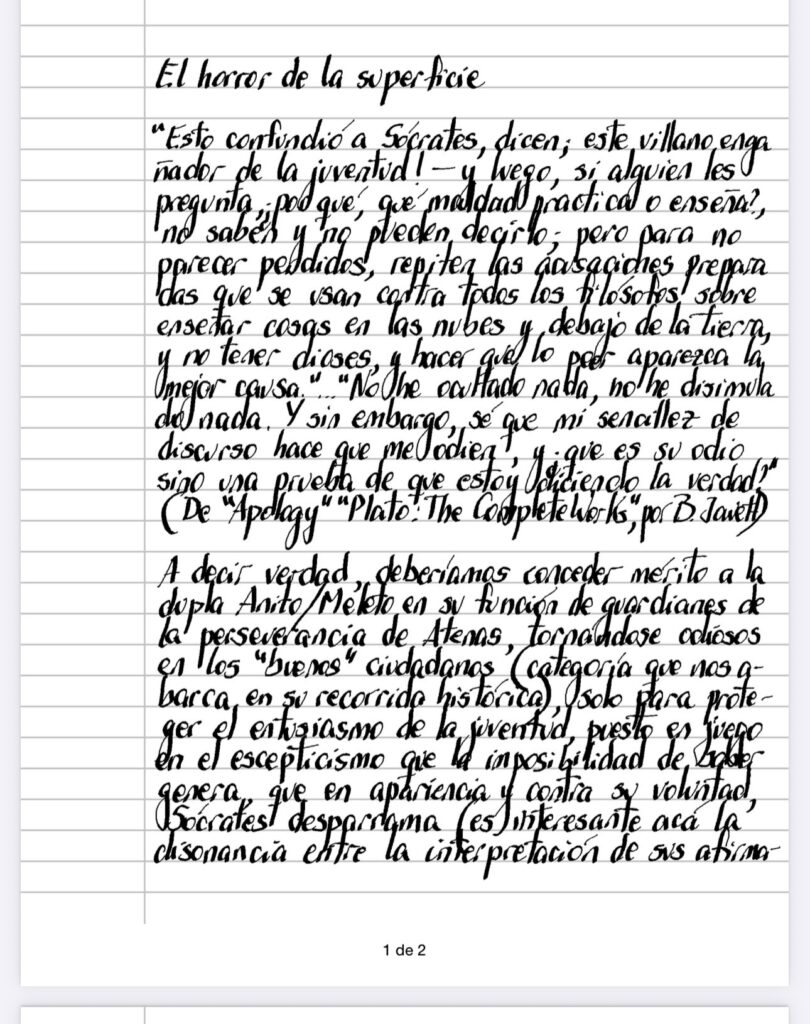 El horror de la superficie
"Esto confundió a Sócrates, dicen; este villano enga
ñador de la juventud! — y luego, si alguien les
pregunta, ¿por qué, qué maldad practica o enseña?,
no saben y no pueden decirlo; pero para no
parecer perdidos, repiten las acusaciones prepara
das que se usan contra todos los filósofos sobre
enseñar cosas en las nubes y debajo de la tierra,
y no tener dioses, y hacer que lo peor aparezca la
mejor causa."... "No he ocultado nada, no he disimula
do nada. Y sin embargo, sé que mi sencillez de
discurso hace que me odien, y ¿que es su odio
sino una prueba de que estoy diciendo la verdad?"
(De "Apology" "Plato: The Complete Works", por B. Jowett)
A decir verdad, deberíamos conceder mérito a la
dupla Anito/Meleto en su función de guardianes de
la perseverancia de Atenas, tornándose odiosos
en los "buenos" ciudadanos (categoría que nos a-
barca, en su recorrido histórica), solo para prote-
ger el entusiasmo de la juventud, puesto en juego
en el escepticismo que la imposibilidad de saber
genera, que en apariencia y contra su voluntad,
Sócrates desparrama (es interesante acá la
disonancia entre la interpretación de sus afirma-
1 de 2